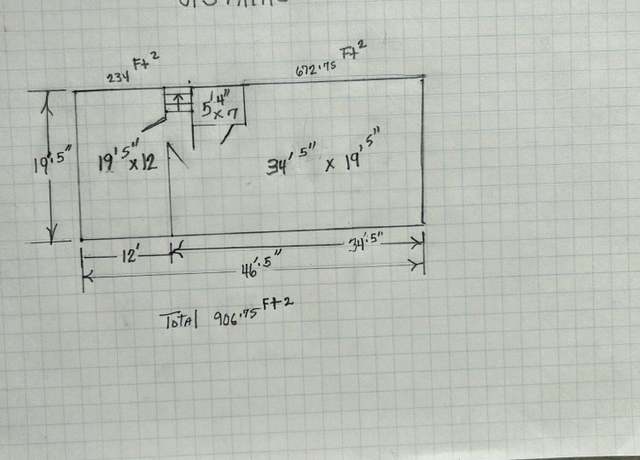 234 Ft2
672.75 Ft2
5'4"
x 7
19'.5"
19'5" x 12
34'5" x 19'5"
12'
34'.5"
46'.5"
Total 906.75 Ft2